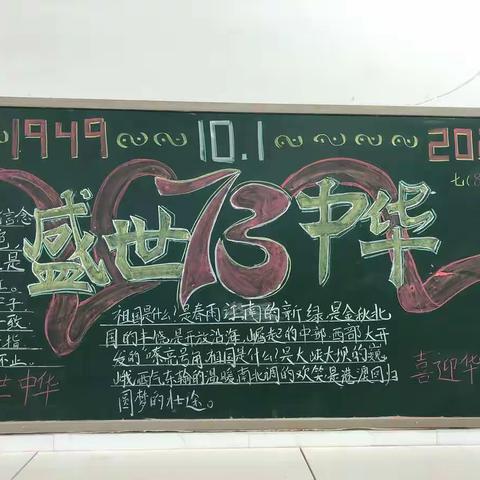 1949 10.1 202
盛世73中华
信念
是
子
歌
指
不止。
世中华
祖国是什么?是春雨江南的新绿是金秋北
国的丰饶,是开放沿海,崛起的中部,西部大开
发的嘹亮号角,祖国是什么?是大峡大坝的巍
峨,西气东输的温暖,南北调的欢笑是港澳回归
圆梦的壮途。
喜迎华